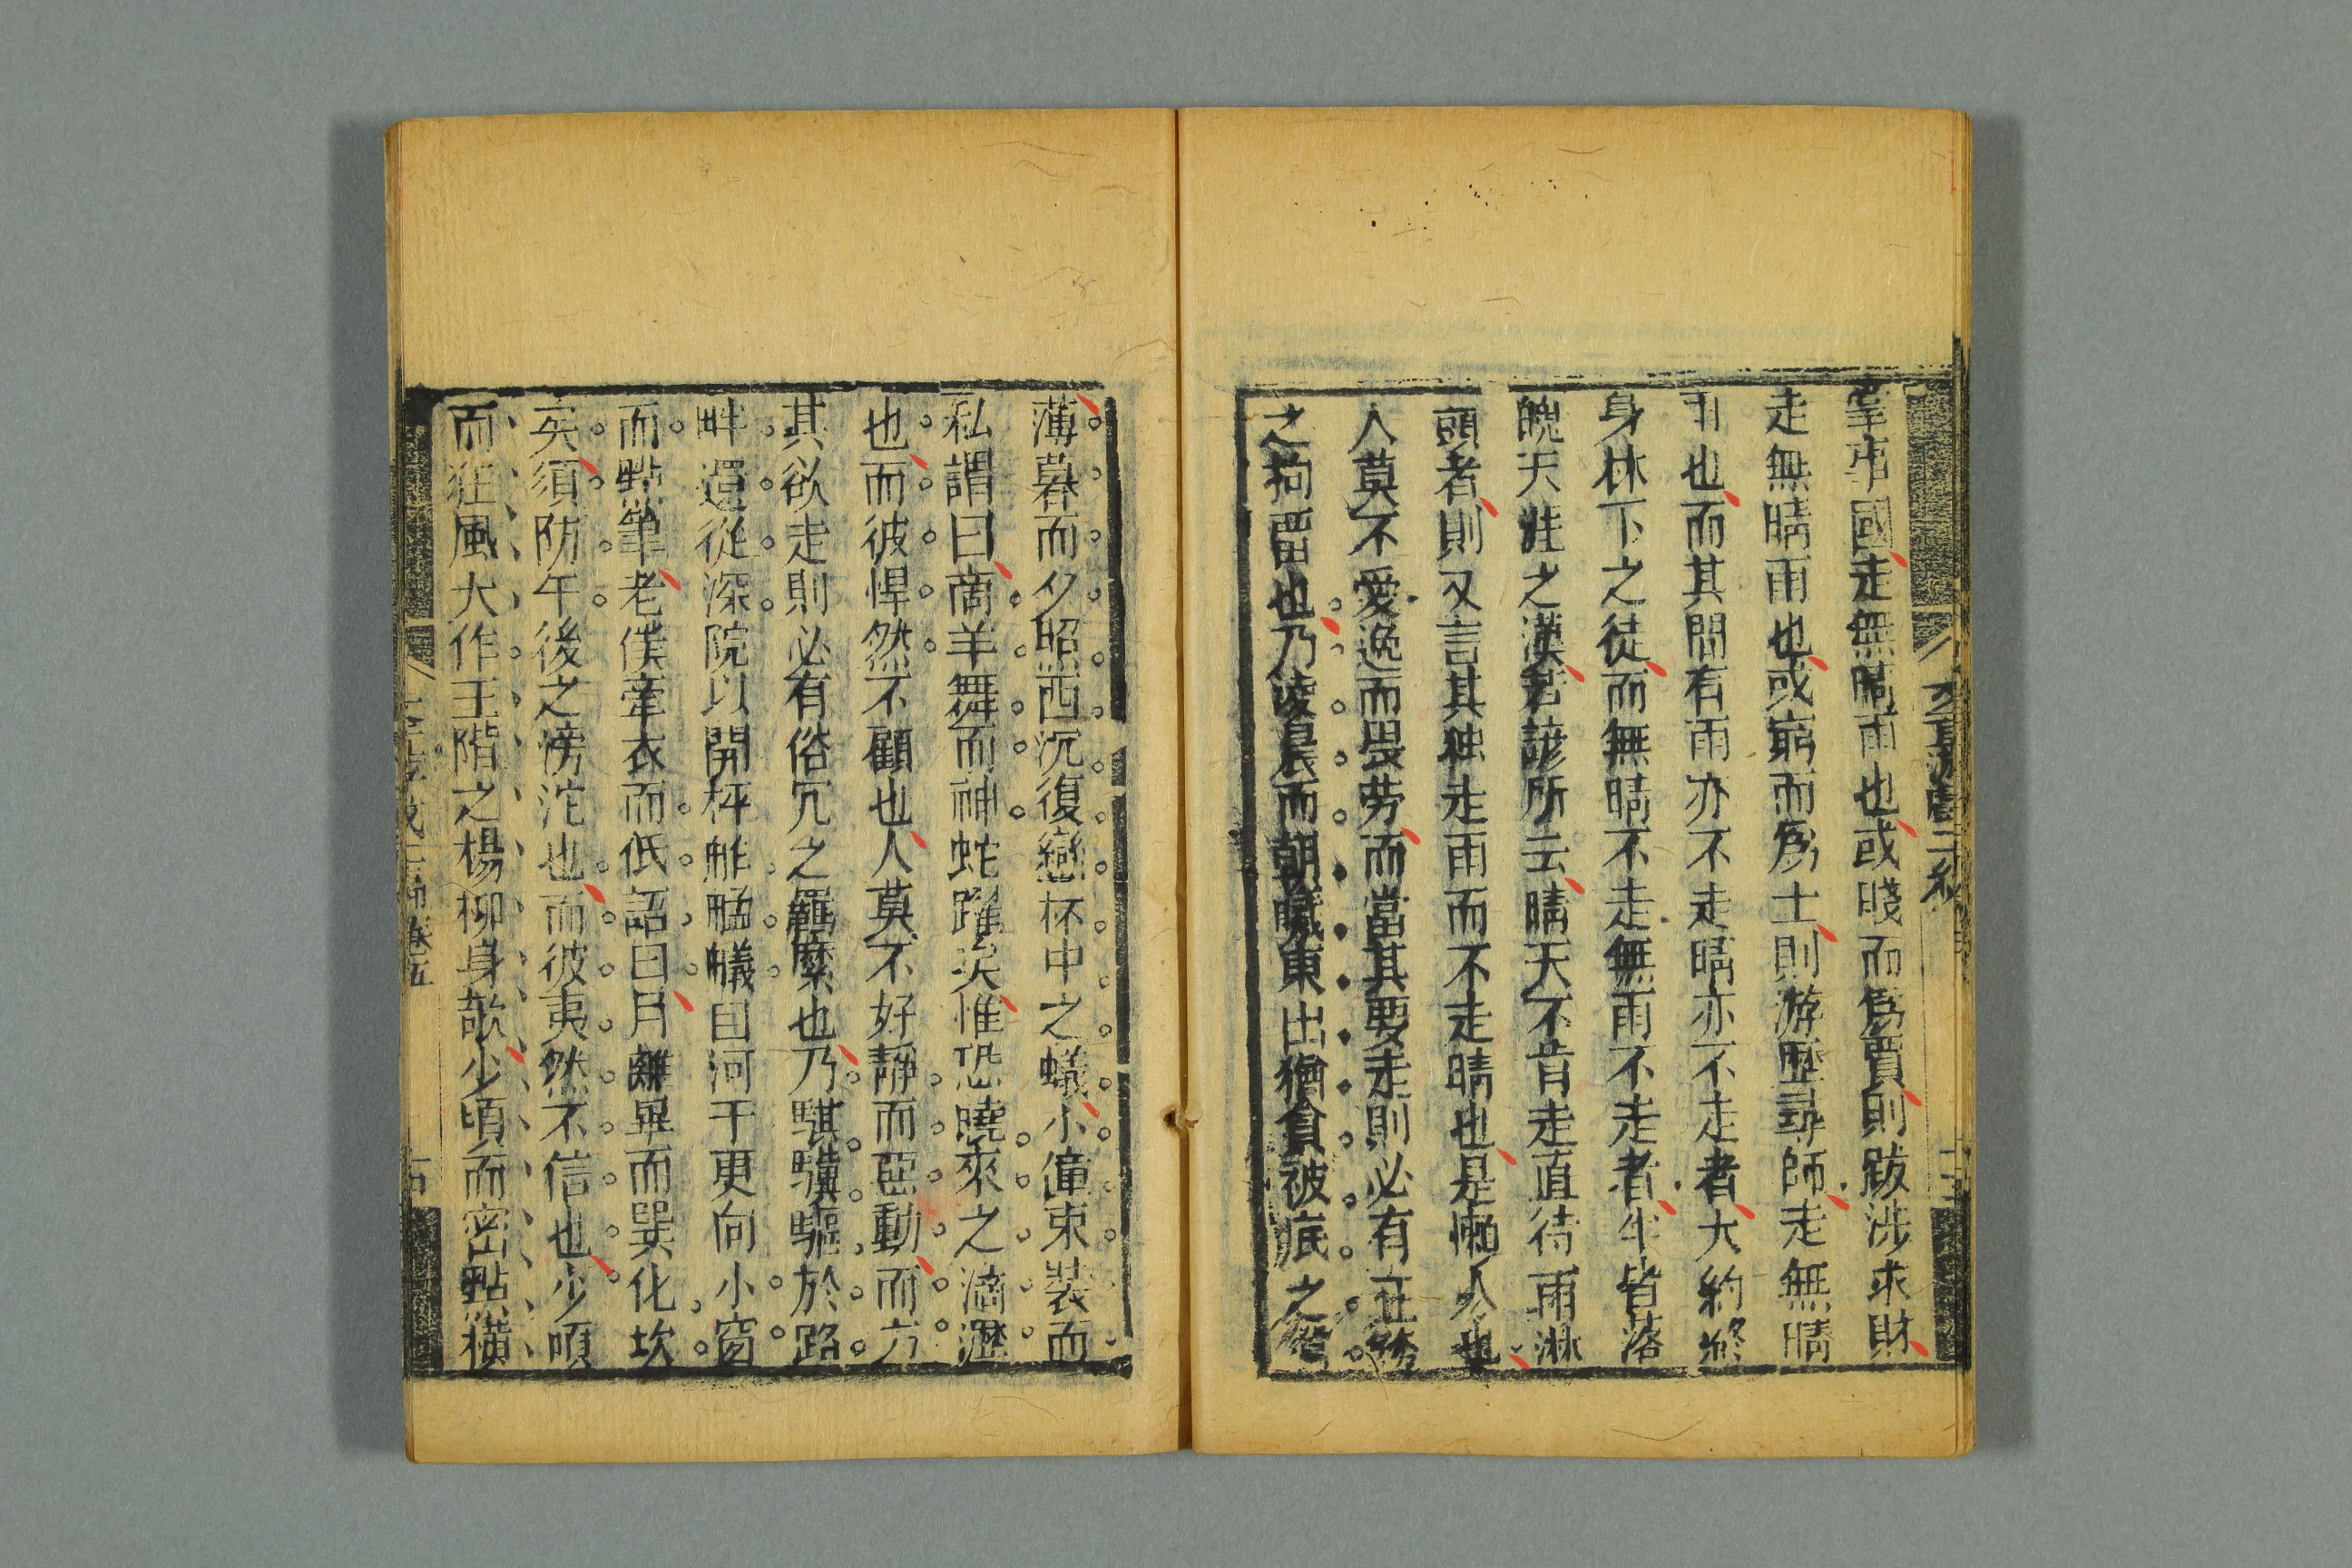 掌事國走無晴雨也或賤而爲賈則跋涉求財
走無晴雨也或窮而爲士則游歷尋師走無晴
雨也而其間有雨亦不走晴亦不走者大約終
身林下之徒而無晴不走無雨不走者半皆落
魄天涯之漢若諺所云晴天不肯走直待雨淋
頭者則又言其独走雨而不走晴也是懶人也
人莫不愛逸而畏劳而當其要走則必有正務
之拘畱也乃凌晨而朝曦東出猶貪被底之
薄暮而夕照西沉復戀杯中之蟻小僮束裝而
私謂曰商羊舞而神蛇躍矣惟恐曉來之滴瀝
也而彼悍然不顧也人莫不好靜而惡動而方
其欲走則必有俗冗之羈縻也乃騏驥驅於路
畔還從深院以開枰舴艋艤自河干更向小窗
而點筆老僕牽衣而低語曰月離畢而巽化坎
矣須防午後之滂沱也而彼夷然不信也少頃
而狂風大作玉階之楊柳身欹少頃而密點橫
卷五